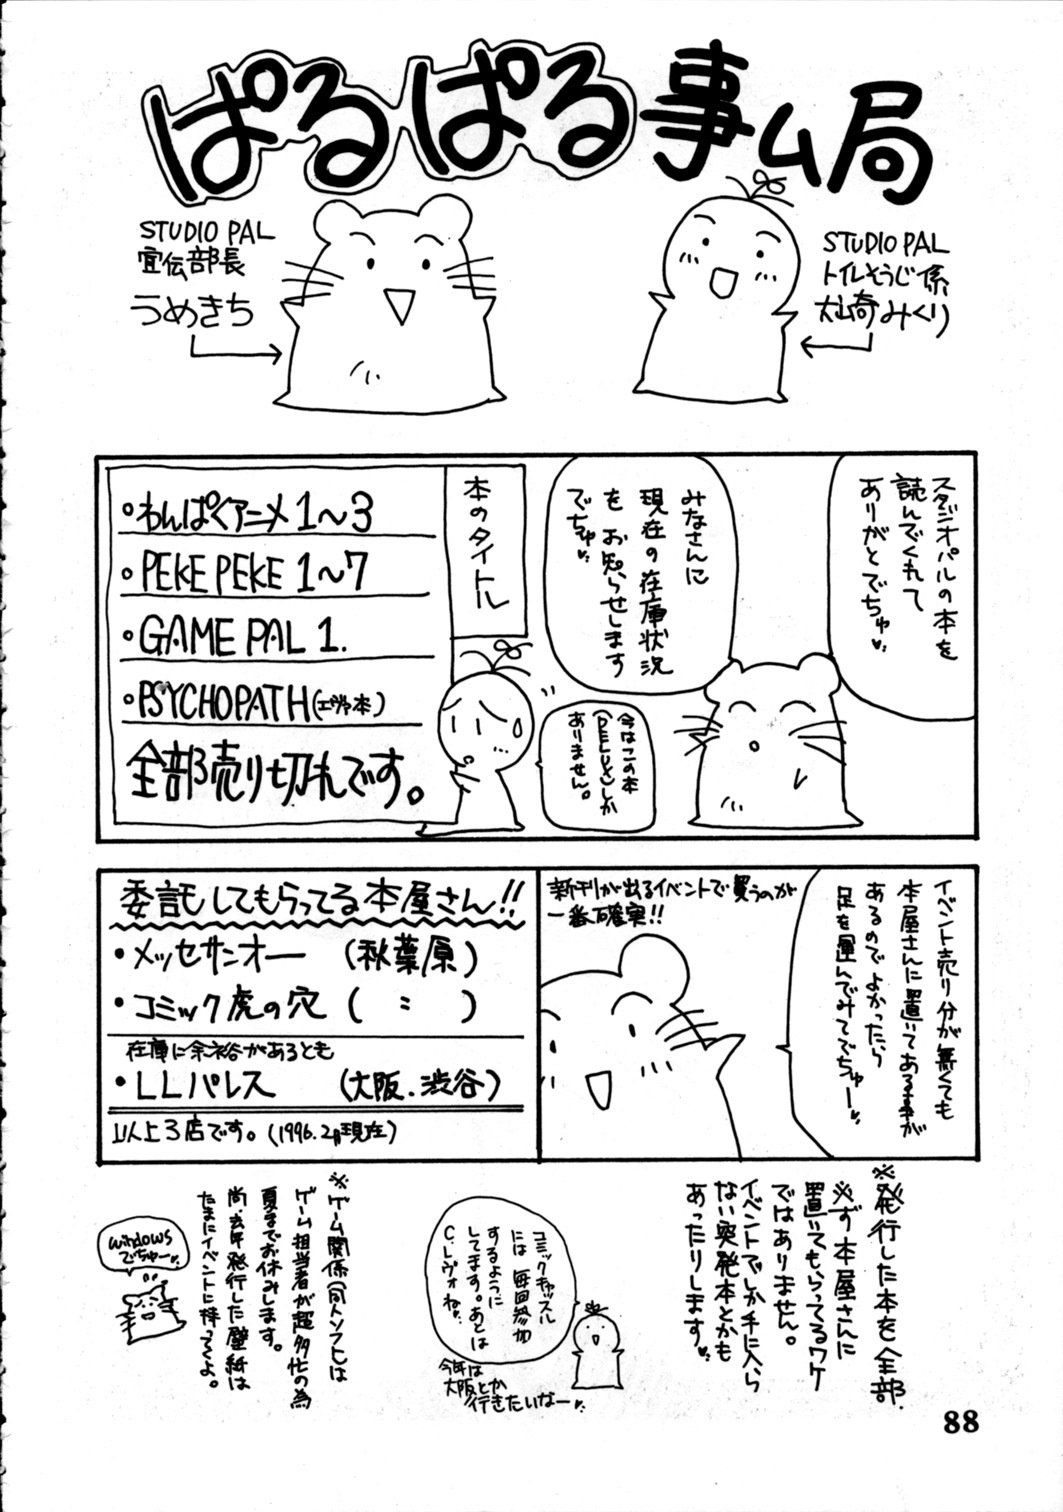 ぱるぱる事ム局
STUDIO PAL
宣伝部長
うめきち
STUDIO PAL
トイレそうじ係
大山奇みくり
スタジオパルの本を
読んでくれて
ありがとでちゅ
みなさんに
現在の在庫状況
を お知らせします
でちゅ
今はこの本
しか
ありません。
本のタイトル
・わんぱくアニメ 1〜3
・PEKE PEKE 1〜7
・GAME PAL 1.
・PSYCHOPATH(エヴァ本)
全部売り切れです。
イベント売り分が無くても
本屋さんに置いてある事が
あるのでよかったら
足を運んでみてでちゅー
新刊が出るイベントで買うのが
一番確実!!
委託してもらってる本屋さん!!
・メッセサンオー (秋葉原)
・コミック虎の穴 ( 〃 )
在庫に余裕があるとも
・LLパレス (大阪.渋谷)
以上3店です。(1996.2月現在)
※発行した本を全部
必ず本屋さんに
置いてもらってるワケ
ではありません。
イベントでしか手に入ら
ない突発本とかも
あったりします
コミックキャッスル
には毎回参加
するように
してます。あとは
C.レヴォね。
今年は
大阪とか
行きたいなー
※ゲーム関係(同人ソフト)は
ゲーム担当者が超多忙の為
夏までお休みします。
尚、去年発行した壁紙は
たまにイベントに持ってくよ。
Windows
でちゅー
88